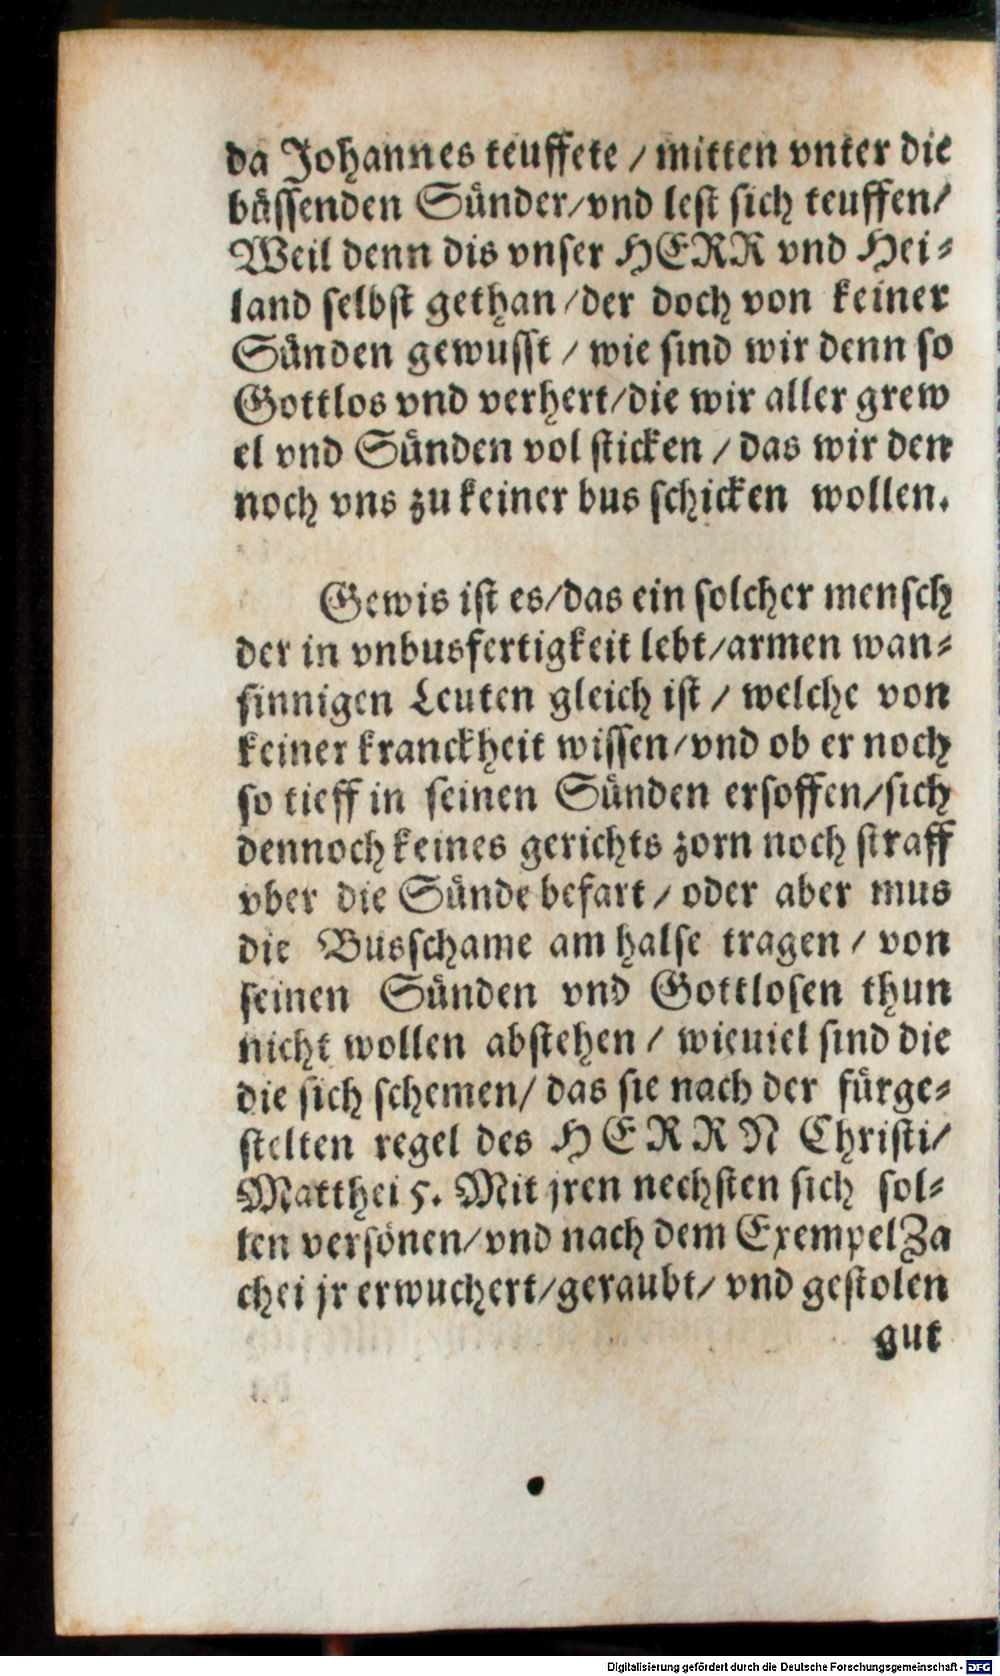 da Johannes teuffete / mitten vnter die
büssenden Sünder/vnd lest sich teuffen/
Weil denn dis vnser HERR vnd Hei-
land selbst gethan/der doch von keiner
Sünden gewusst / wie sind wir denn so
Gottlos vnd verhert/die wir aller grew
el vnd Sünden vol sticken / das wir den
noch vns zu keiner bus schicken wollen.
Gewis ist es/das ein solcher mensch
der in vnbusfertigkeit lebt/armen wan-
sinnigen Leuten gleich ist / welche von
keiner kranckheit wissen/vnd ob er noch
so tieff in seinen Sünden ersoffen/sich
dennoch keines gerichts zorn noch straff
vber die Sünde befart/ oder aber mus
die Busschame am halse tragen / von
seinen Sünden vnd Gottlosen thun
nicht wollen abstehen / wieuiel sind die
die sich schemen/ das sie nach der fürge-
stelten regel des HERRN Christi/
Matthei 5. Mit jren nechsten sich sol-
ten versönen/vnd nach dem Exempel Za
chei jr erwuchert/geraubt/ vnd gestolen
gut
Digitalisierung gefördert durch die Deutsche Forschungsgemeinschaft - DFG